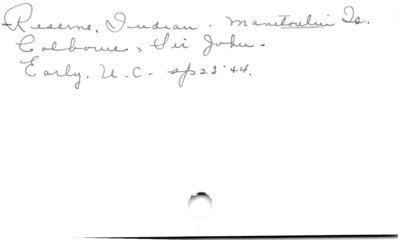 Reserve, Indian. Manitoulin Is.
Colborne, Sir John.
Early. U.C. sp 23 '44.